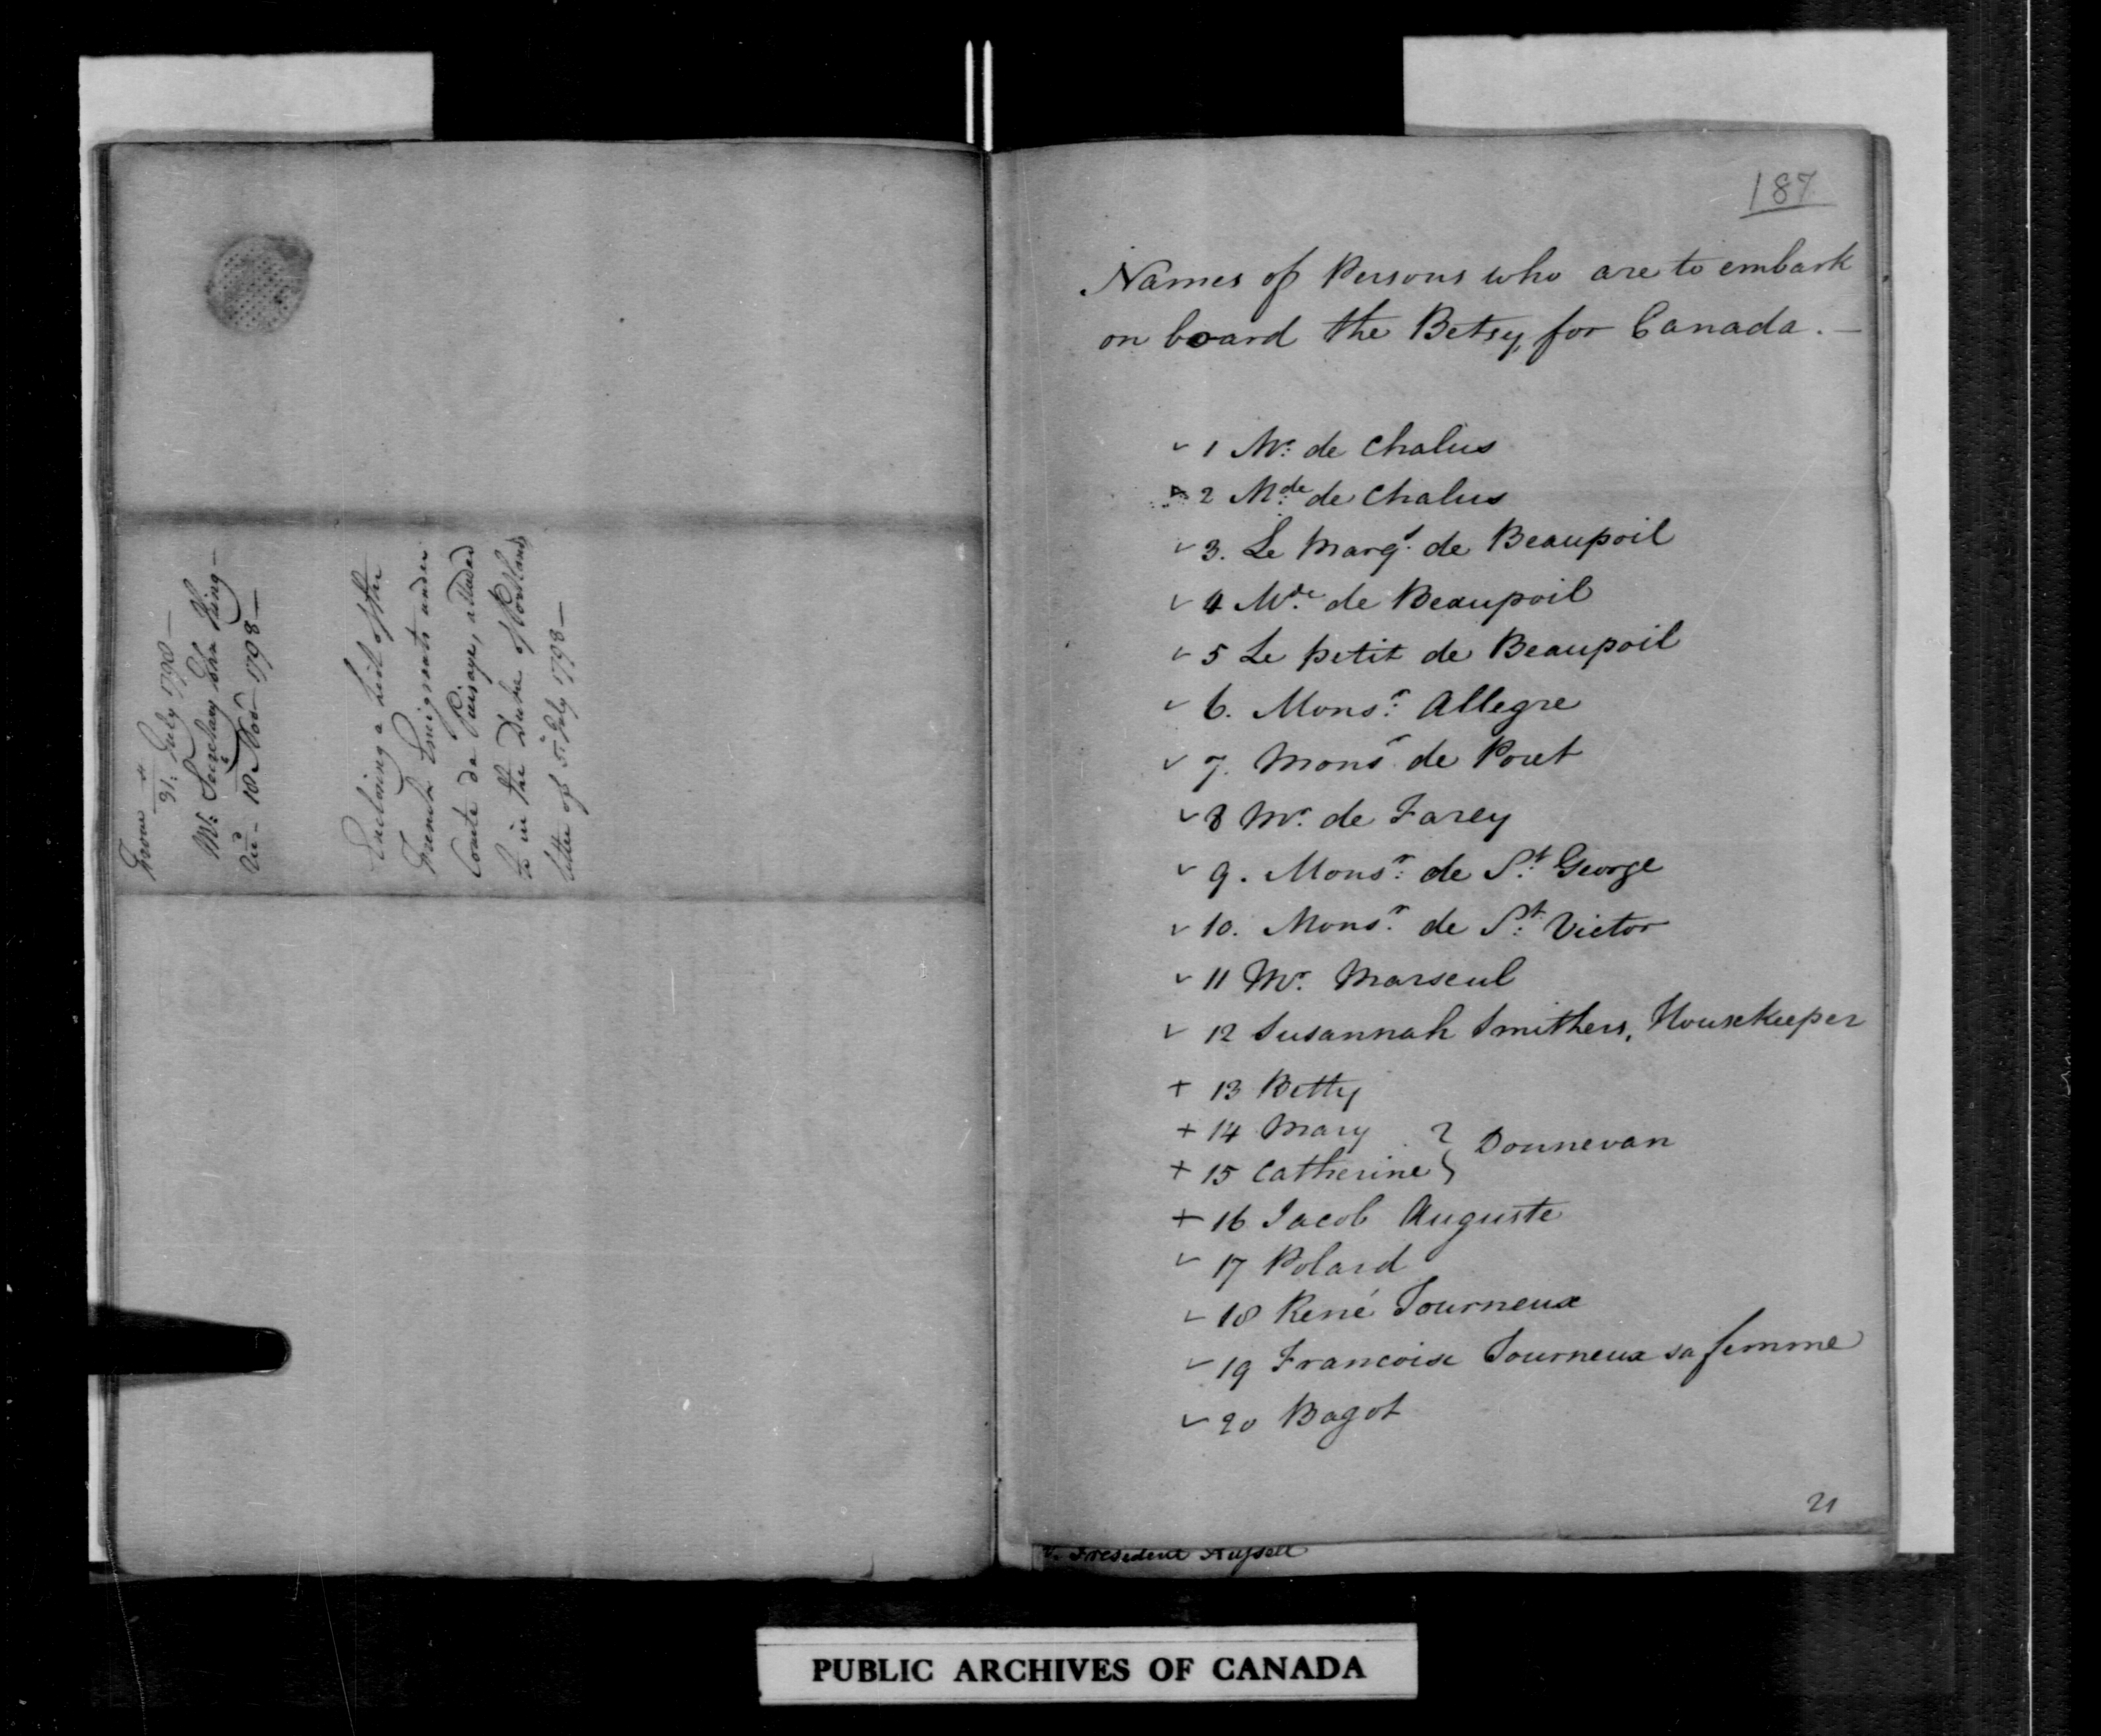 From
31st July 1798 —
Mr. Secretary Jno King —
recd 18 Novr 1798 —
Enclosing a List of the
French Emigrants under
Comte de Puisaye, alluded
to in the Duke of Portland's
letter of 5th July 1798 —
187
Names of Persons who are to embark
on board the Betsy, for Canada. —
✓ 1 Mr. de Chalus
2 Mde. de Chalus
✓ 3. Le Marqs. de Beaupoil
✓ 4 Mde. de Beaupoil
✓ 5 Le petit de Beaupoil
✓ 6. Monsr. Allegre
✓ 7. Monsr. de Poret
✓ 8 Mr. de Farcy
✓ 9. Monsr. de St. George
✓ 10. Monsr. de St. Victor
✓ 11 Mr. Marseul
✓ 12 Susannah Smithers, Housekeeper
+ 13 Betty
+ 14 Mary } Donnevan
+ 15 Catherine
+ 16 Jacob Auguste
✓ 17 Polard
✓ 18 René Tourneux
✓ 19 Francoise Tourneux sa femme
✓ 20 Bagot
21
President Russell
PUBLIC ARCHIVES OF CANADA